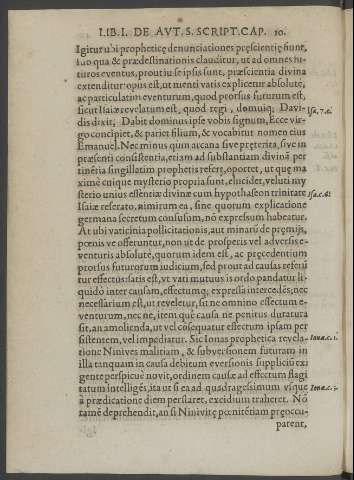 LIB. I. DE AVT. S. SCRIPT. CAP. 10.
Igitur ubi propheticę denunciationes pręscientię sunt,
suo quæ & prædestinationis clauditur, ut ad omnes
turos eventus, prout iis se ipsis sunt, præscientia divina
extenditur: opus est, ut menti vatis explicetur absolutè,
ac particulatim eventurum, quod prorsus futurum est,
sicut Isaiæ revelatum est, quod regi, domuiq; Davi-
dis dixit, Dabit dominus ipse vobis signum, Ecce vir-
Isa. 7. c.
go concipiet, & pariet filium, & vocabitur nomen eius
Emanuel. Nec minus quùm arcana sive pręterita, sive in
præsenti consistentia, etiam ad substantiam divinā per
tinētia singillatim prophetis referę, oportet, ut quę ma
ximè cuique mysterio propria sunt, elucidet, veluti my
sterio unius essentiæ divinæ cum hypothaseon trinitate
Isa. c. 6.
Isaiæ reserato, nimirum ea, sine quorum explicatione
germana secretum confusum, nō expressum habeatur.
At ubi vaticinia pollicitationis, aut minarū de pręmijs,
pœnis ve offeruntur, non ut de prosperis vel adversis e-
venturis absolutè, quorum idem est, ac pręcedentium
prorsus futurorum iudicium, sed prout ad causas referū
tur effectus: satis est, ut vati mutuus is ordo pandatur li-
quidò inter causam, effectumq; expressā intercedēs; nec
necessarium est, ut reveletur, sit ne omnino effectum e-
venturum, nec ne, item quę causa ne penitus duratura
sit, an amolienda, ut vel cōsequatur effectum ipsam per
sistentem, vel impediatur. Sic Ionas prophetica revela-
Ionæ. c. 1.
tione Ninives malitiam, & subversionem futuram in
illa tanquam in causa debitum eversionis supplicii exi
gente perspicuè novit, ordinem causæ ad effectum flagi
tatum intelligēs, ita ut si ea ad quadragesimum usque
Ionæ. c. 3.
à prædicatione diem perstaret, excidium traheret. Nō
tamē deprehendit, an si Ninivitę pœnitētiam pręoccu-
patent,